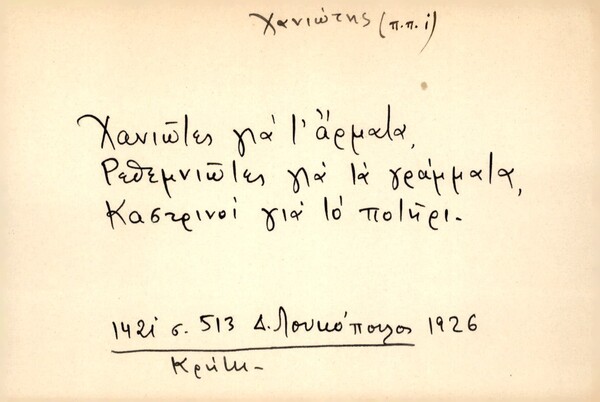 Χανιώτης (π.π.ἰ)
Χανιῶτες γιὰ τ' ἄρματα,
Ρεθεμνιῶτες γιὰ τὰ γράμματα,
Καστρινοὶ γιὰ τὸ ποτῆρι.
142ἰ σ. 513 Δ. Λουκόπουλος 1926
Κρήτη.